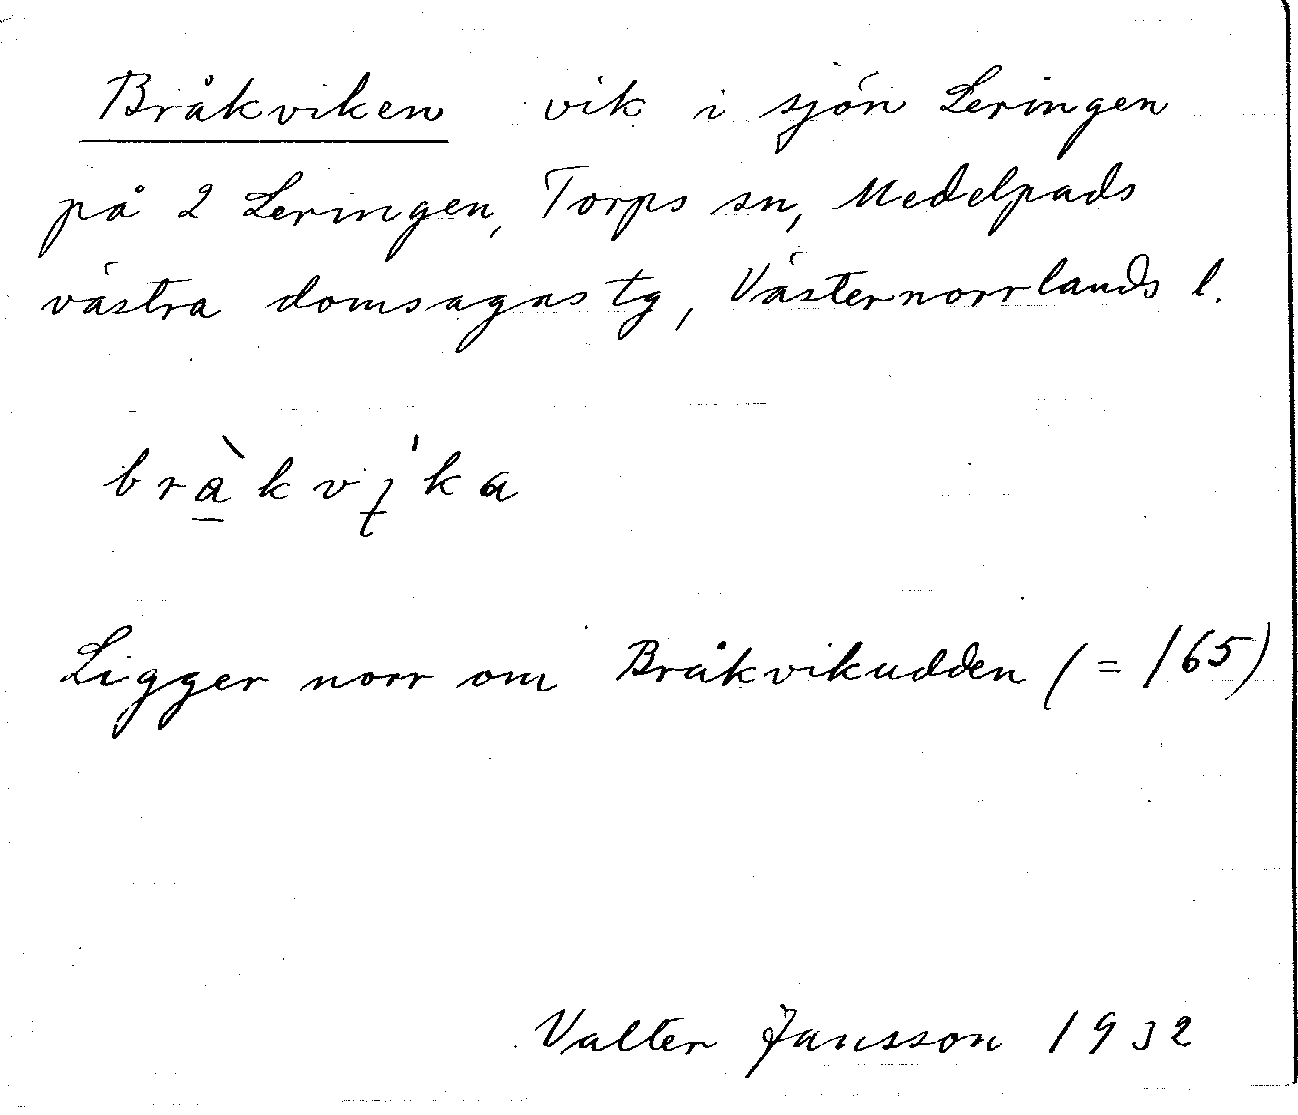 Bråkviken vik i sjön Leringen
på 2 Leringen, Torps sn, Medelpads
västra domsagas tg, Västernorrlands l.
brà̱kví̵ka
Ligger norr om Bråkvikudden (= 165)
Valter Jansson 1932